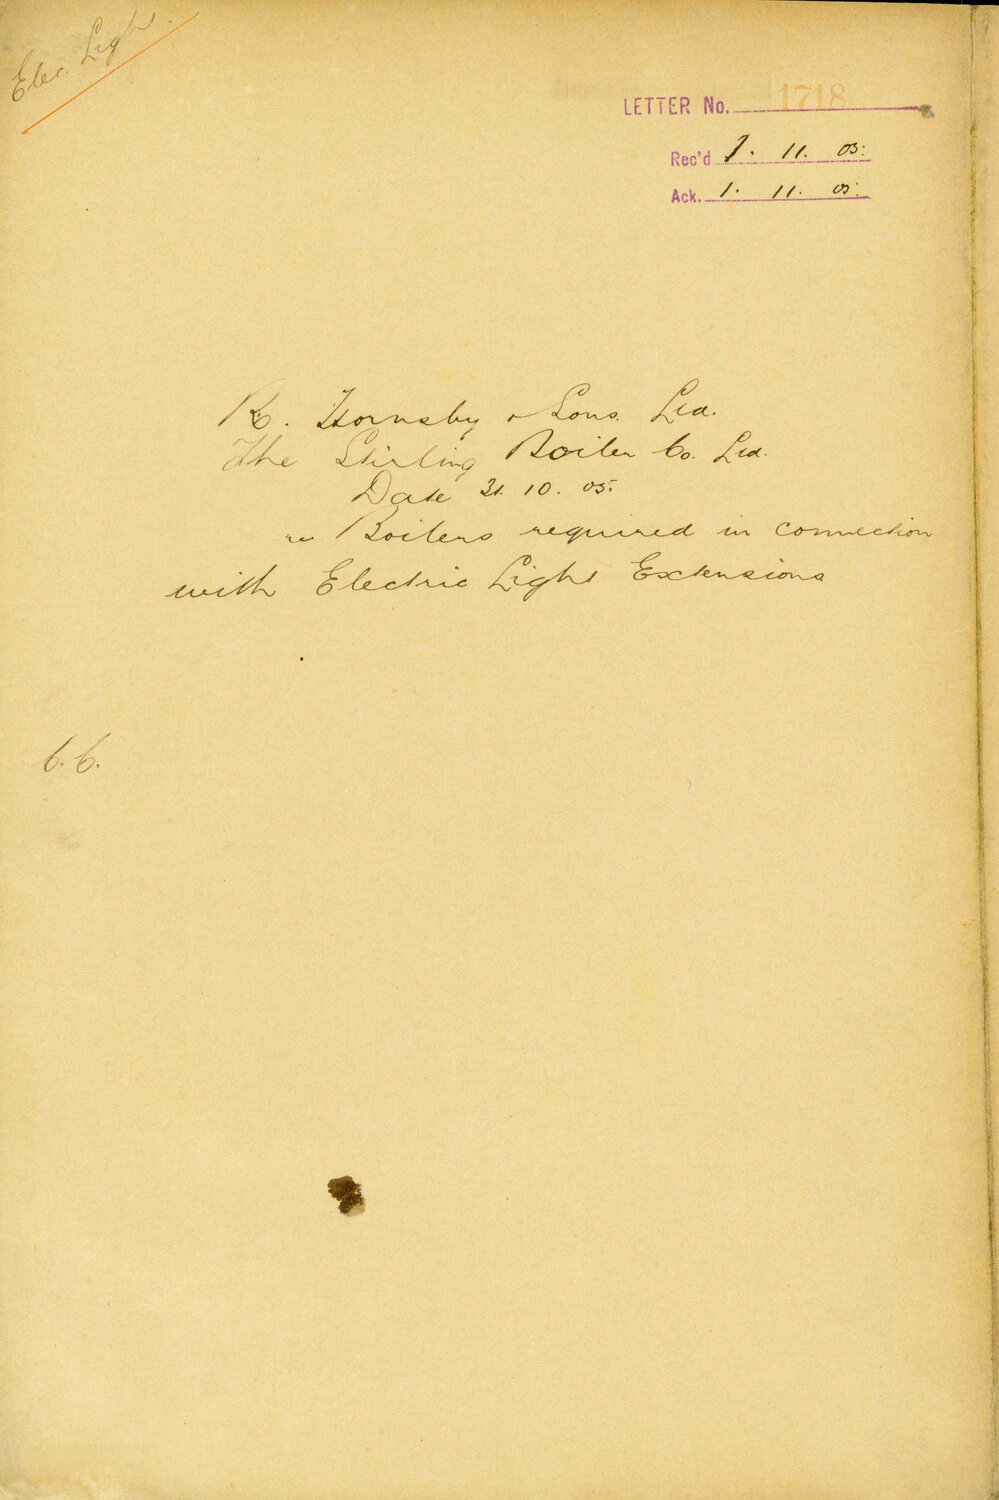 Elec. Light.
LETTER No. 1718
Rec'd 1. 11. 05.
Ack. 1. 11. 05.
R. Hornsby & Sons. Ltd.
The Stirling Boiler Co. Ltd.
Date 31. 10. 05.
re Boilers required in connection
with Electric Light Extensions
C. C.